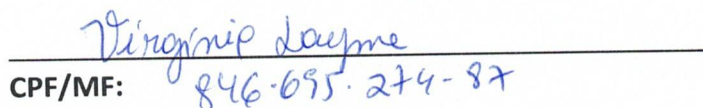 Virgínia Layme
CPF/MF: 846.695.274-87